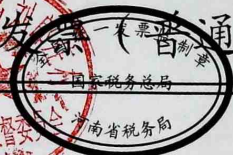 发票（普通
全国统一发票监制章
国家税务总局
河南省税务局
督委